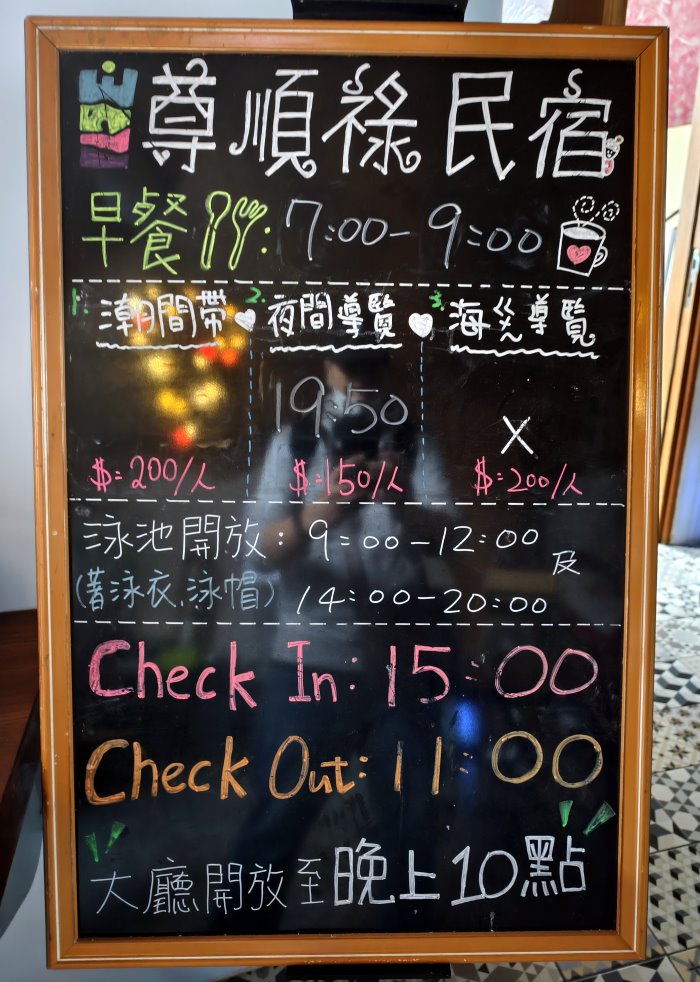 尊順祿民宿
早餐: 7:00-9:00
1. 潮間帶 2. 夜間導覽 3. 海災導覽
19:50 X
$:200/人 $:150/人 $:200/人
泳池開放: 9:00-12:00 及
(著泳衣.泳帽) 14:00-20:00
Check In: 15:00
Check Out: 11:00
大廳開放至晚上10點